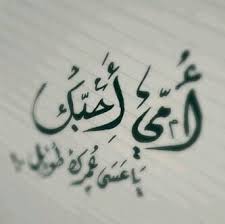 أُمّي أُحبّك
يَا عَسَى عُمرِك طُويل